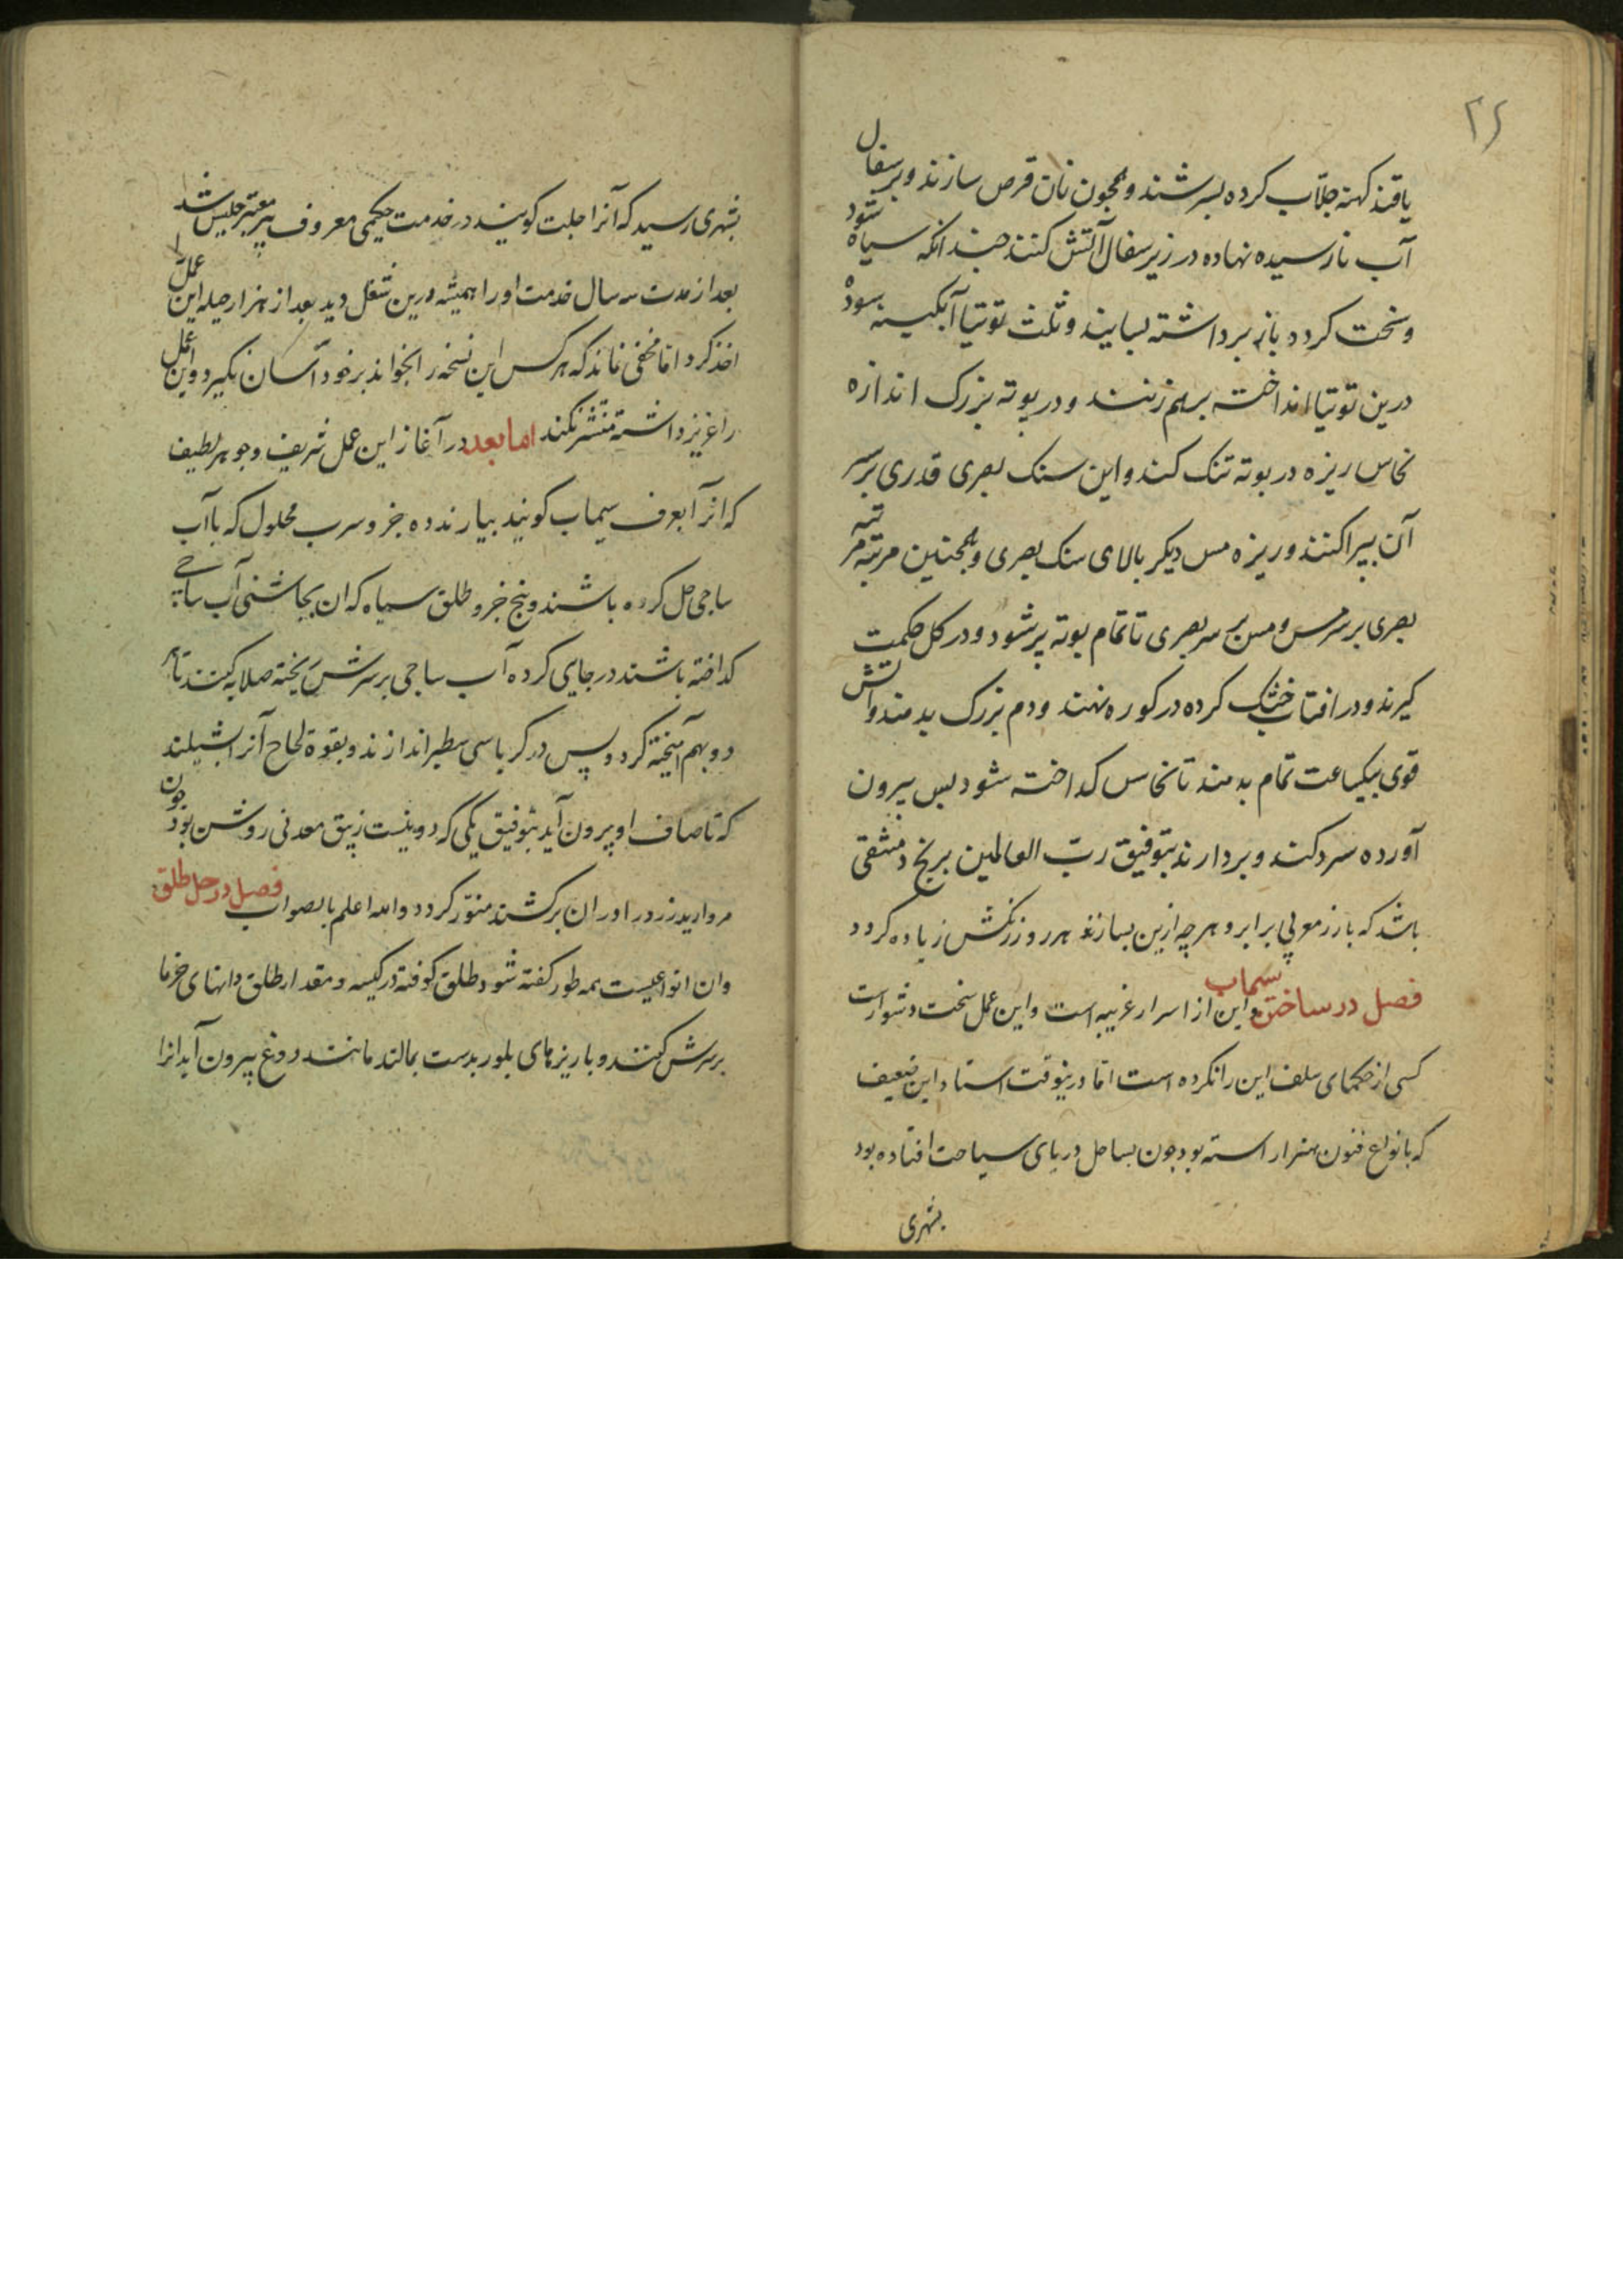 ۲۶
یا قند کهنه جلاب کرده بسرشند و همجون نان قرص سازند و بر سفال
آب نارسیده نهاده در زیر سفال آتش کنند جندانکه سیاه شود
و سخت کرده باز برداشته بسایند و ثلث توتیا آبکینه سوده
درین توتیا انداخته برهم زنند و در بوته بزرک اندازه
نحاس ریزه در بوته تنک کند و این سنک بصری قدری بر سر
آن بپراکنند و ریزه مس دیکر بالای سنک بصری و همجنین مرتبه مرتبه
بصری بر سر مس و مس بر سر بصری تا تمام بوته پر شود و در کل حکمت
کیرند و در افتاب خشک کرده در کوره نهند و دم بزرک بدمند و اتش
قوی بیکساعت تمام بدمند تا نحاس کداخته شود بس بیرون
آورده سرد کنند و بردارند بتوفیق رب العالمین برنج دمشقی
باشد که با زر مغربی برابر و هر جه ازین بسازند هر روز رنکش زیاده کردد
فصل در ساختن سیماب و این از اسرار غریبه است و این عمل سخت دشوار است
کسی از حکمای سلف این را نکرده است اما درینوقت استاد این ضعیف
که بانواع فنون هنر اراسته بود جون بساحل دریای سیاحت افتاده بود
بشهری
بشهری رسید که آنرا جلبت کویند در خدمت حکیمی معروف پیر معتبر جلیس شد
بعد از مدت سه سال خدمت او را همیشه درین شغل دید بعد از هزار حیله این عمل را
اخذ کرد اما مخفی نماند که هر کس این نسخه را بخواند بر خود آسان نکیرد و این عمل
را عزیز داشته منتشر نکند اما بعد در آغاز این عمل شریف و جوهر لطیف
که انرا بعرف سیماب کویند بیارند ده جزو سرب محلول که باآب
ساجی حل کرده باشند و پنج جزو طلق سیاه که ان بجاشنی آب ساجی
کداخته باشند در جای کرده آب ساجی بر سرش ریخته صلایه کنند تا هر
دو بهم آمیخته کردد پس در کرباسی سطبر اندازند و بقوة لحاح آنرا بشیلند
که تا صاف او بیرون آید بتوفیق یکی که دویی نیست زیبق معدنی روشن بود جون
مروارید زرد را در ان برکشند منور کردد والله اعلم بالصواب فصل در حل طلق
وان انواعیست بهمه طور کفته شود طلق کوفته در کیسه و مقدار طلق دانهای خرما
بر سرش کنند و با ریزهای بلور بدست بمالند مانند دوغ بیرون آید انرا